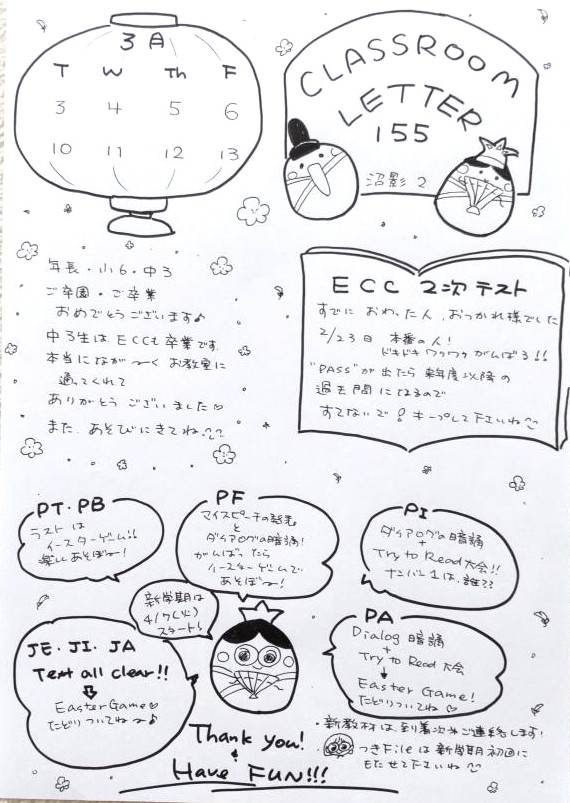 3月
T W Th F
3 4 5 6
10 11 12 13
CLASSROOM
LETTER
155
沼影 2
年長・小6・中3
ご卒園・ご卒業
おめでとうございます♪
中3生はECCも卒業です。
本当になが〜く お教室に
通ってくれて
ありがとう ございました♡
また、あそびにきてね。
ECC 2次テスト
すでに おわった人、おつかれ様でした
2/23日 本番の人!
ドキドキ ワクワク がんばろ!!
"PASS"が出たら 来年度以降の
過去問になるので
すてないで! キープして下さいね
PT・PB
ラスト は
イースターゲーム!!
楽しい あそぼ〜!
PF
マイスピーチの発表
と
ダイアログの暗誦!
がんばったら
イースターゲームで
あそぼ〜!
PI
ダイアログの暗誦
+
Try to Read大会!!
ナンバー1は、誰??
新学期は
4/7(火)
スタート!
JE・JI・JA
Text all clear!!
⇩
Easter Game♡
たどりついてね〜♪
PA
Dialog 暗誦
+
Try to Read 大会
↓
Easter Game!
たどりついてね♡
Thank you!
&
Have FUN!!!
・新教材は、到着次第ご連絡します!
・つきFileは新学期初回に
もたせて下さいね